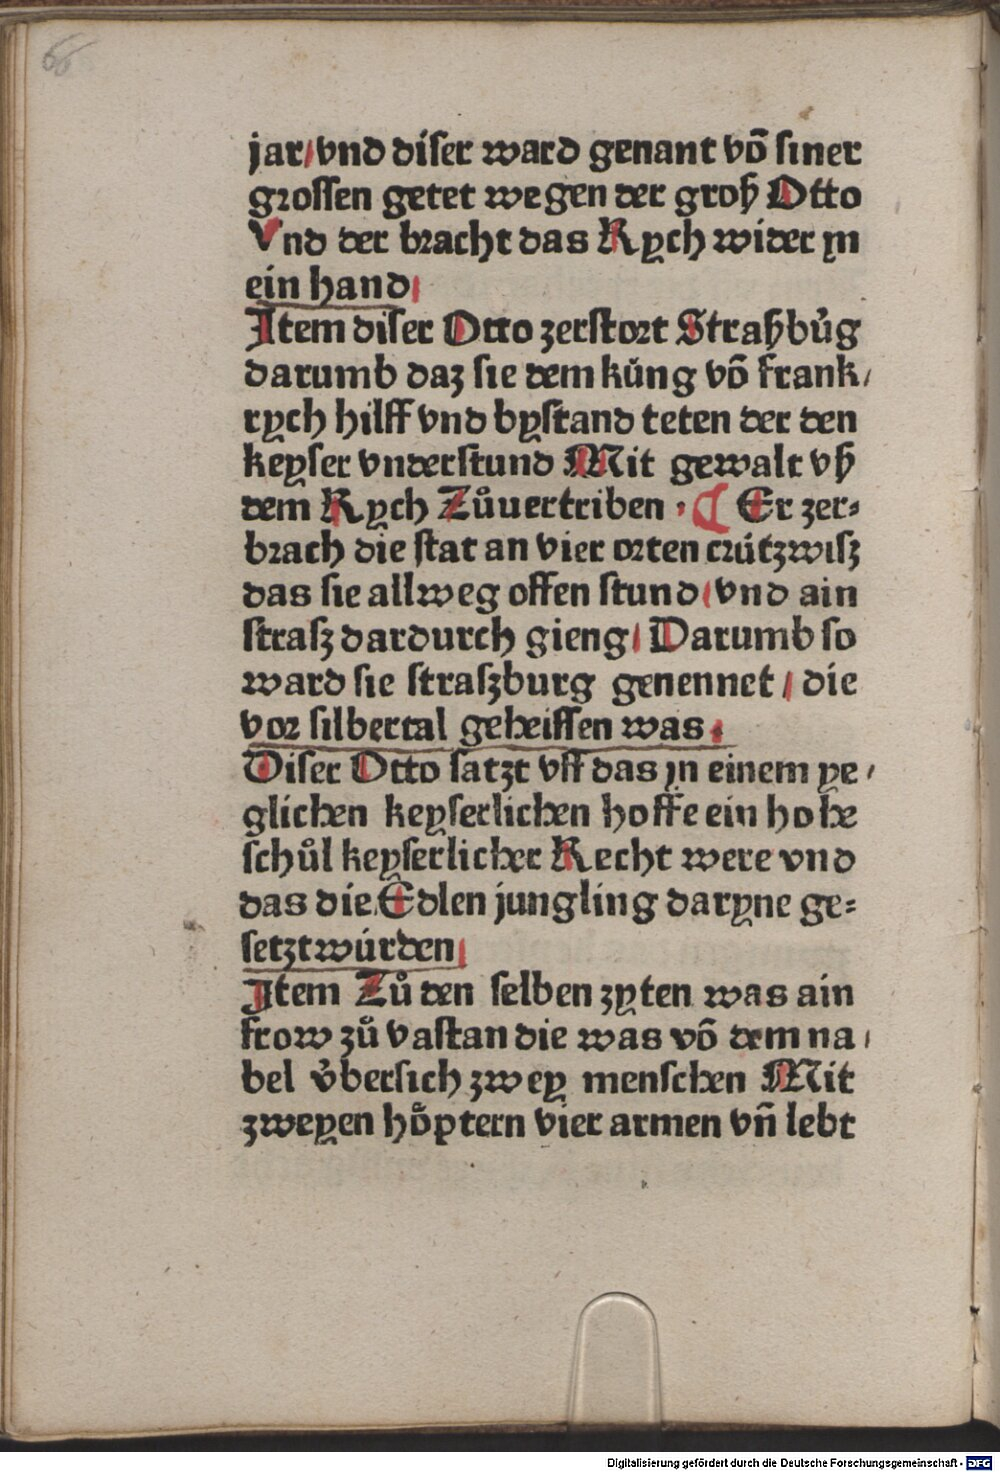 66
jar/ vnd diser ward genant võ siner
grossen getet wegen der groß Otto
Vnd der bracht das Rych wider yn
ein hand/
Item diser Otto zerstort Straßbůg
darumb daz sie dem kúng võ frank/
rych hilff vnd bystand teten der den
keyser vnderstund Mit gewalt vß
dem Rych Zůuertriben · ¶ Er zer=
brach die stat an vier orten crútzwisz
das sie allweg offen stund/ vnd ain
strasz dardurch gieng/ Darumb so
ward sie straszburg genennet / die
vor silbertal geheissen was.
Diser Otto satzt vff das jn einem ye/
glichen keyserlichen hoffe ein hohe
schůl keyserlicher Recht were vnd
das die Edlen jungling daryne ge=
setzt wúrden/
Jtem Zů den selben zyten was ain
frow zů vastan die was võ dem na/
bel v̊bersich zwey menschen Mit
zweyen hoͤptern vier armen vñ lebt
Digitalisierung gefördert durch die Deutsche Forschungsgemeinschaft - DFG